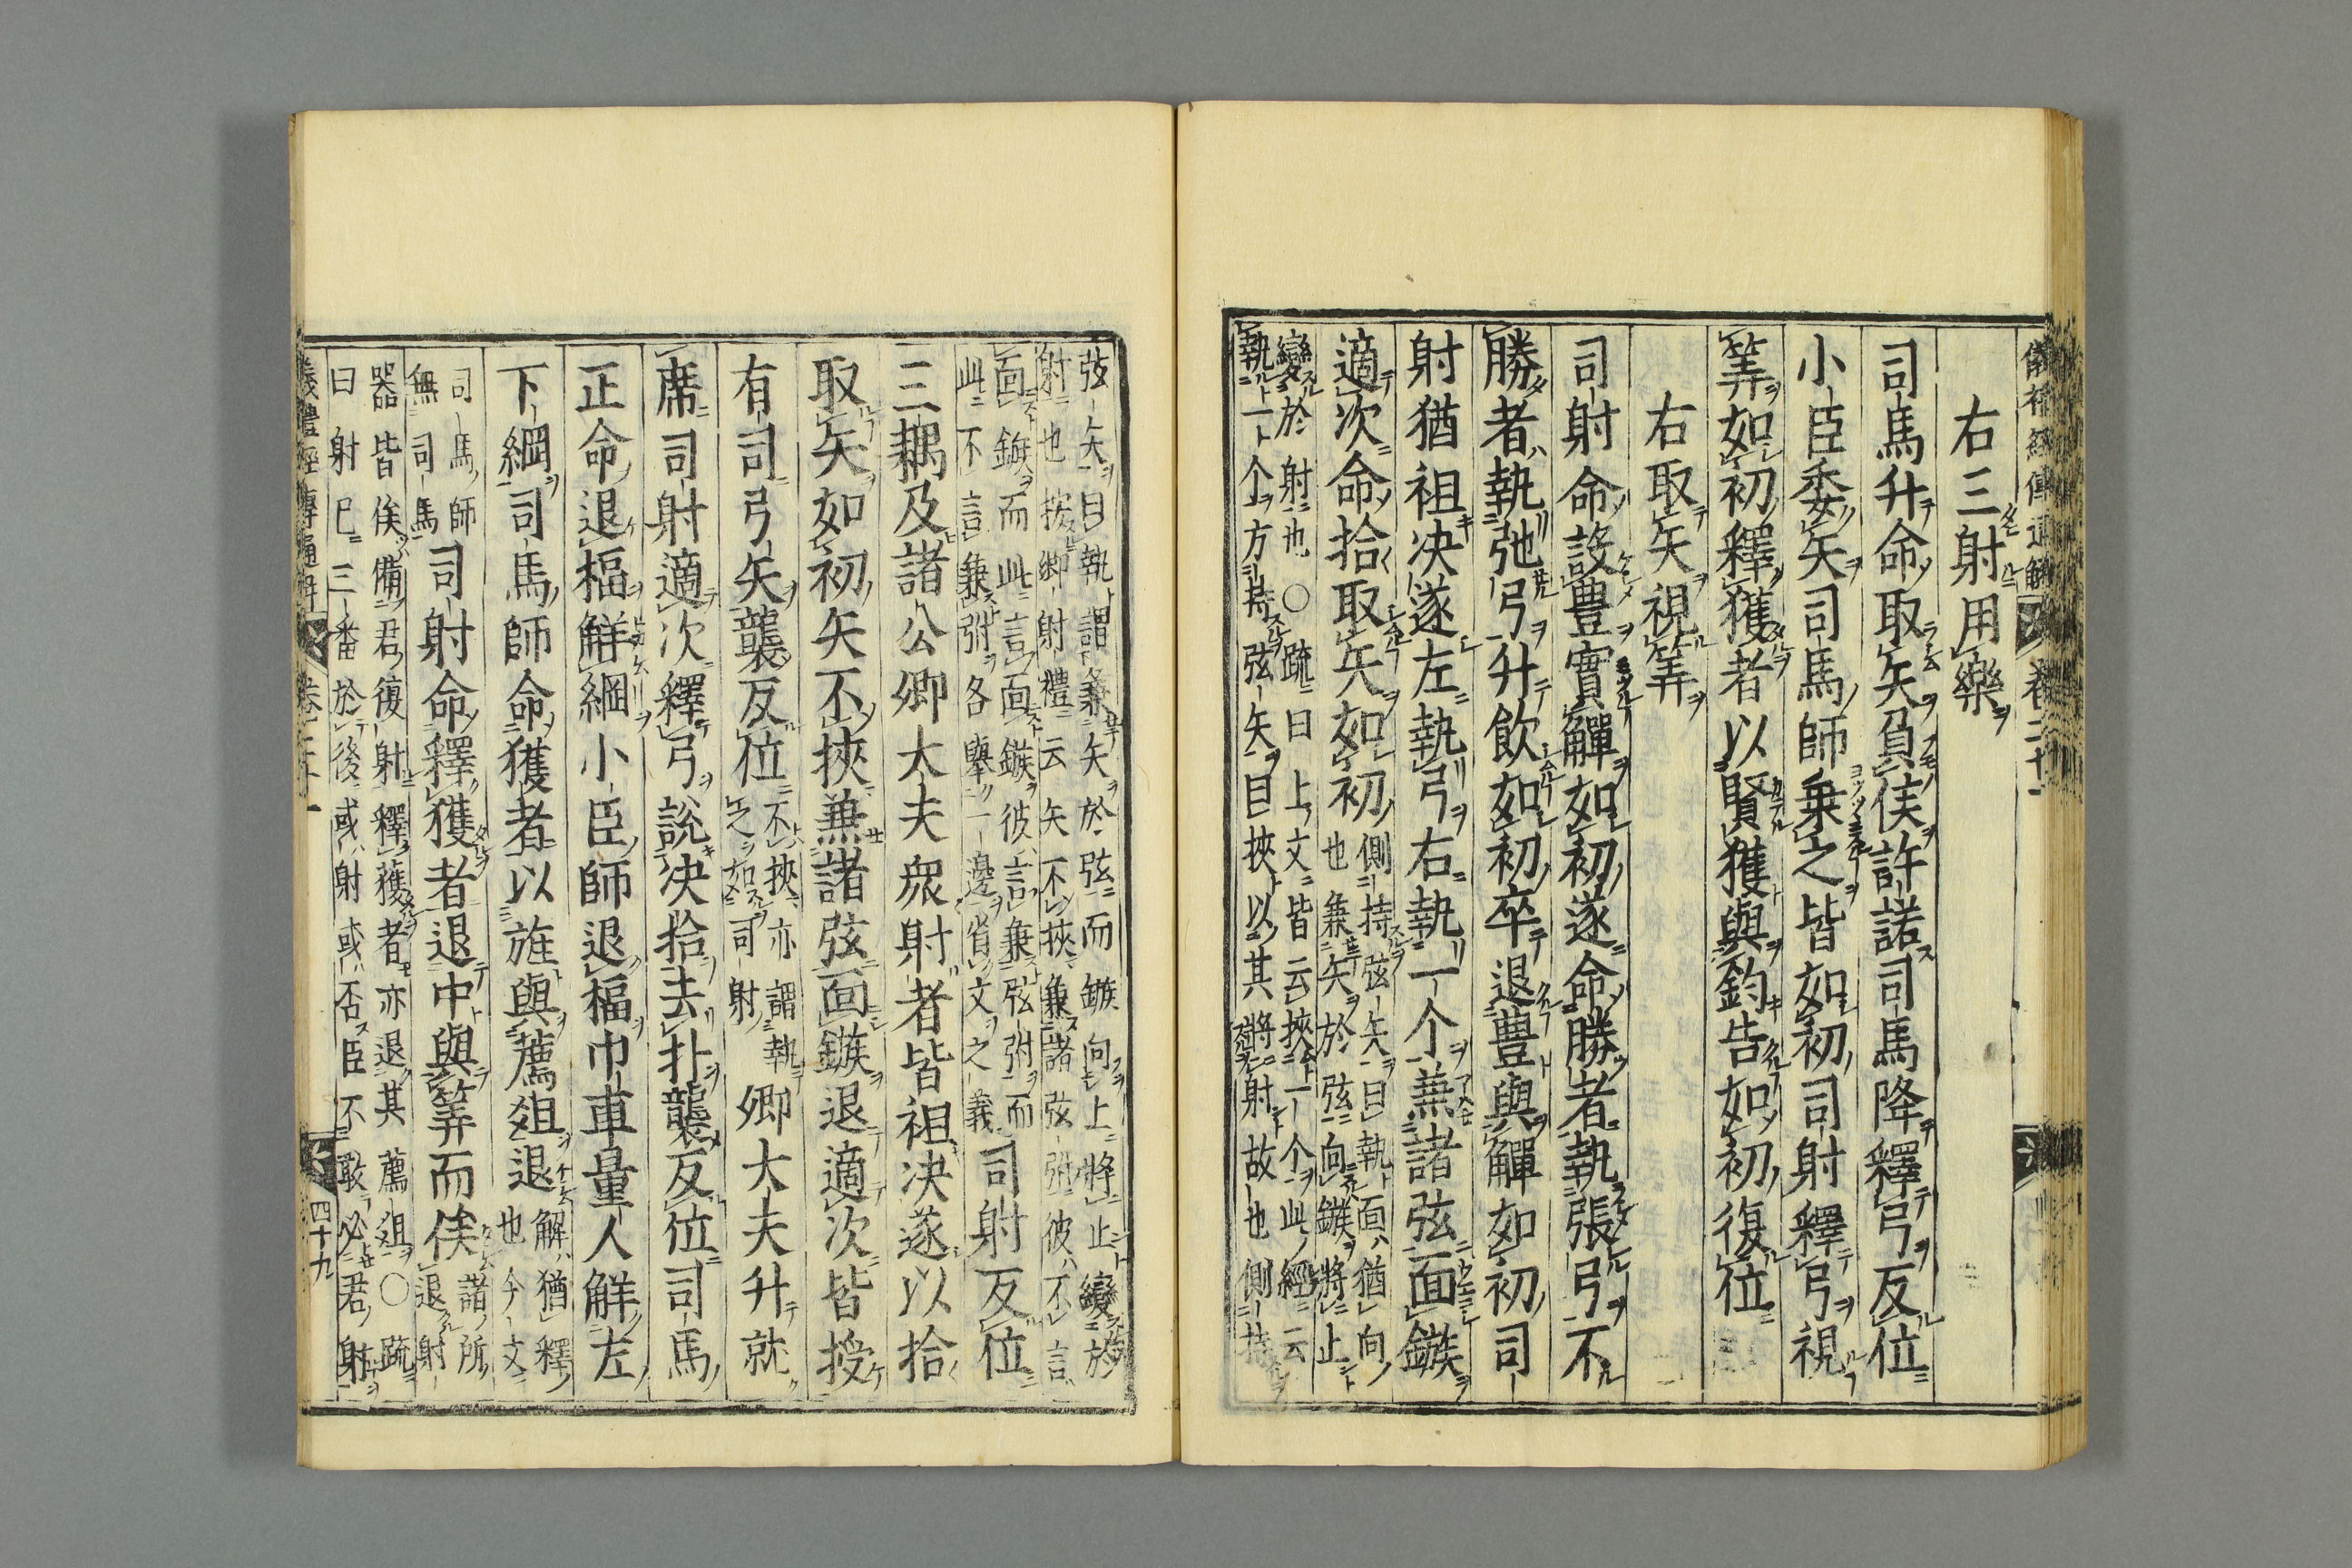 儀禮經傳通解 卷二十一
右三射用樂
司馬升命取矢負侯許諾司馬降釋弓反位
小臣委矢司馬師乗之皆如初司射釋弓視
筭如初釋獲者以賢獲與鈞告如初復位
右取矢視筭
司射命設豊實觶如初遂命勝者執張弓不
勝者執弛弓升飲如初卒退豊與觶如初司
射猶袒决遂左執弓右執一个兼諸弦面鏃
適次命拾取矢如初側持弦矢曰執面猶向
也兼矢於弦向鏃將止
變於射也〇疏曰上文皆云挾一个此經云
執一个方持弦矢目挾以其將射故也側持
弦矢曰執謂兼矢於弦而鏃向上將止變於
射也按鄉射禮云矢不挾兼諸弦弣彼不言
面鏃而此言面鏃彼言兼弦弣而
此不言兼弣各舉一邊省文之義司射反位
三耦及諸公卿大夫衆射者皆袒决遂以拾
取矢如初矢不挾兼諸弦面鏃退適次皆授
有司弓矢襲反位不挾亦謂執
之如司射卿大夫升就
席司射適次釋弓說决拾去扑襲反位司馬
正命退楅觧綱小臣師退楅巾車量人觧左
下綱司馬師命獲者以旌與薦俎退解猶釋
也今文
司馬師
無司馬司射命釋獲者退中與筭而俟諸所
退射
器皆俟備君復射釋獲者亦退其薦俎〇疏
曰射已三番於後或射或否臣不敢必君射
儀禮經傳通解 卷二十一 四十九